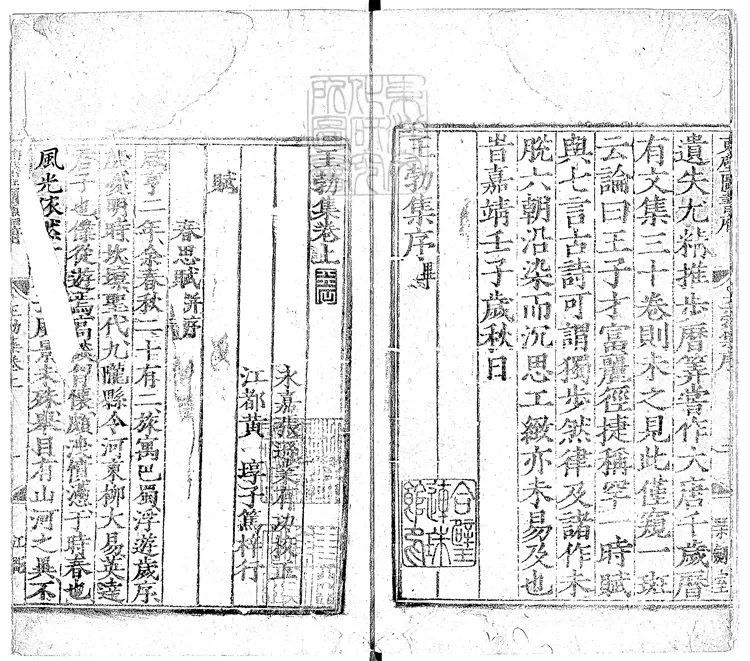 遺失尤精推步曆筭嘗作大唐千歲曆
有文集三十卷則未之見此僅窺一斑
云論曰王子才富麗徑捷稱罕一時賦
與七言古詩可謂獨步然律及諸作未
脫六朝沿染而沉思工緻亦未易及也
昔嘉靖壬子歲秋日
王勃集序畢
王勃集卷上
永嘉張遜業有功校正
江都黃埻子篤梓行
賦
春思賦并序
咸亨二年余春秋二十有二旅寓巴蜀浮遊歲序
殷憂明時坎壈聖代九隴縣令河東柳太易英達
君子也僕從遊焉高談胷懷頗洩憤懣于時春也
風光依然
風景未殊舉目有山河之異不